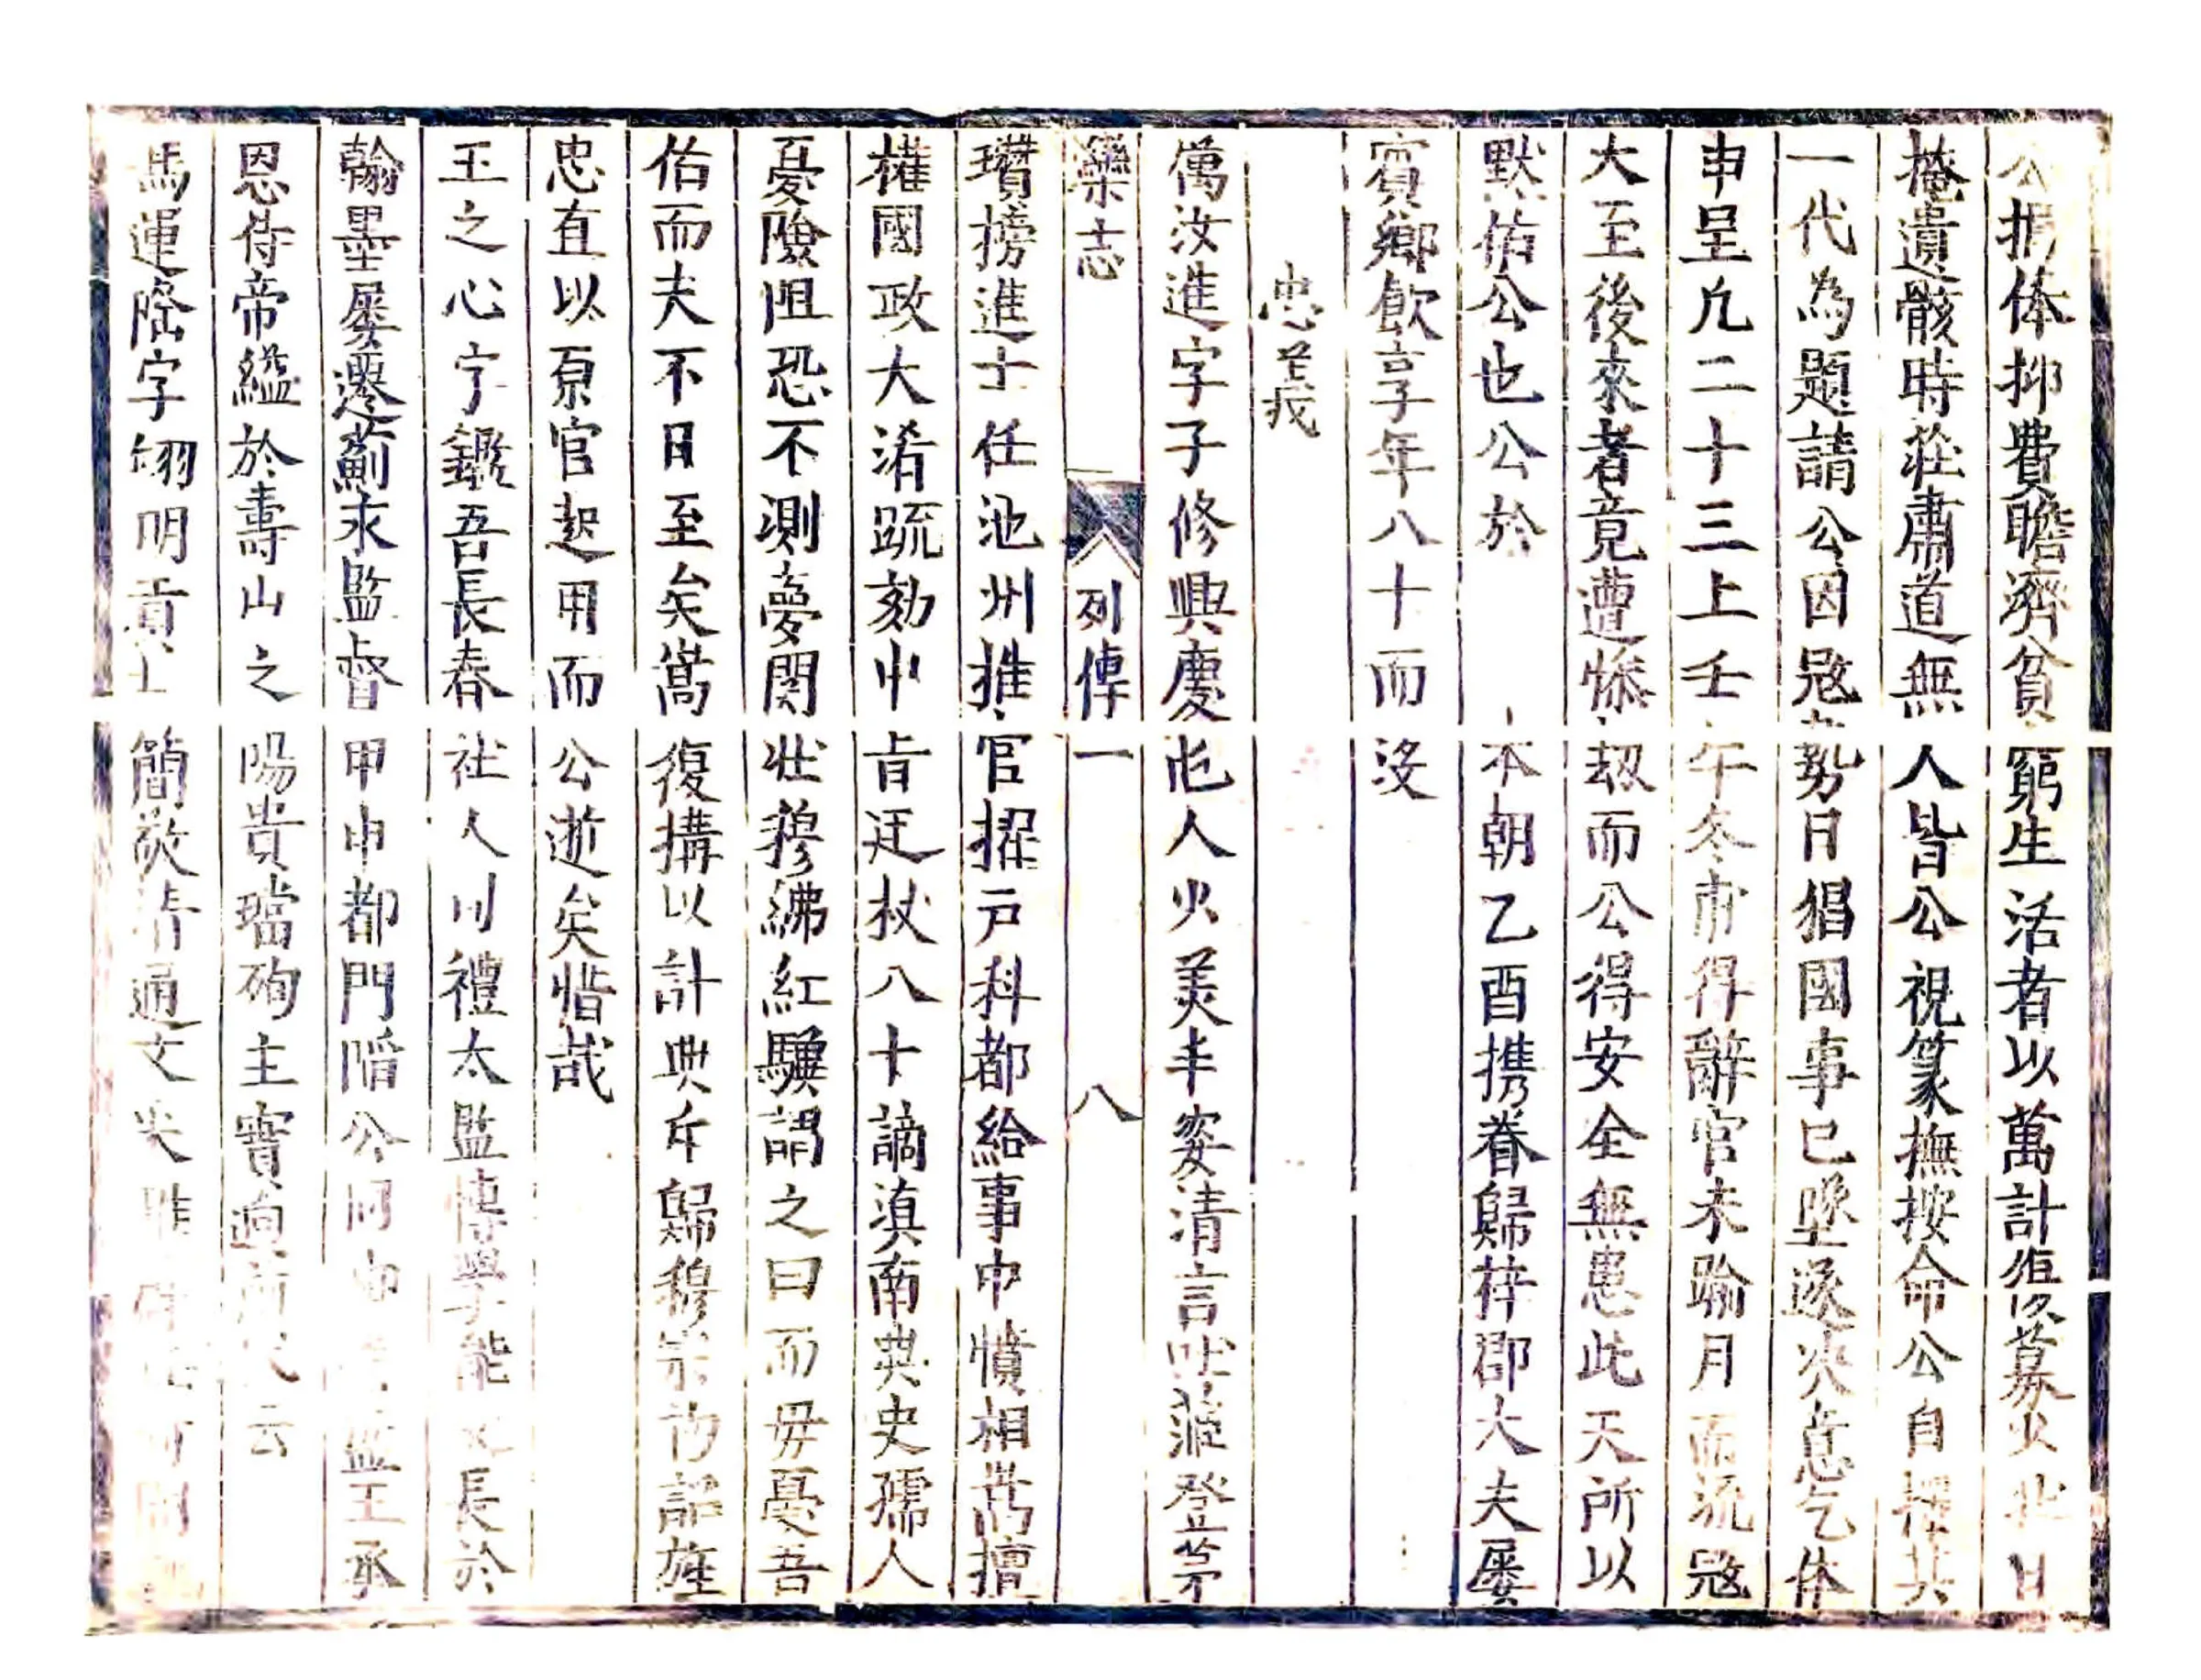 公捐俸抑費贍濟貧窮生活者以萬計復以募火北日
掩遺骸時莊肅道無人皆公視篆撫按命公自擇其
一代為題請公因冦勢日猖國事已墜遂决意乞休
申呈凢二十三上壬午冬甫得辭官未踰月而流冦
大至後來者竟遭慘刼而公得安全無恙此天所以
默佑公也公於本朝乙酉携眷歸梓郡大夫屢
賓鄉飲享年八十而没
忠義
萬汝進字子修興慶也人火美丰姿清言吐蕋登茅
欒志 列傳一 八
瓚榜進士任池州推官擢戸科都給事中憤相嵩擅
權國政大淆疏劾中肯廷杖八十謫滇南典史孺人
憂險阻恐不測夢関壯穆綈紅驥謂之曰而毋憂吾
佑而夫不日至矣嵩復搆以計典斥歸穆宗初詔旌
忠直以原官起用而公逝矣惜哉
王之心字鑑吾長春社人司禮太監博學能文長於
翰墨屢遷薊永監督甲申都門陷公同中監王承
恩侍帝縊於壽山之陽貴璫殉主實逈前代云
馬運陞字翊明貢士簡敬清通文